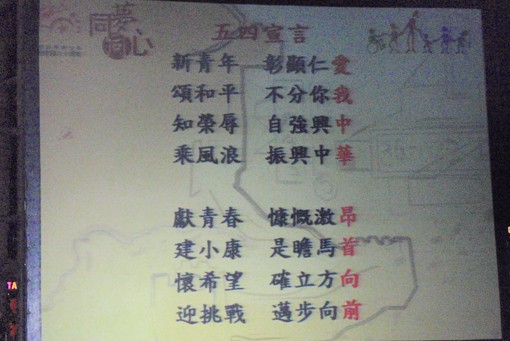 同夢同心
五四宣言
新青年 彰顯仁愛
頌和平 不分你我
知榮辱 自強興中
乘風浪 振興中華
獻青春 慷慨激昂
建小康 是瞻馬首
懷希望 確立方向
迎挑戰 邁步向前
TA